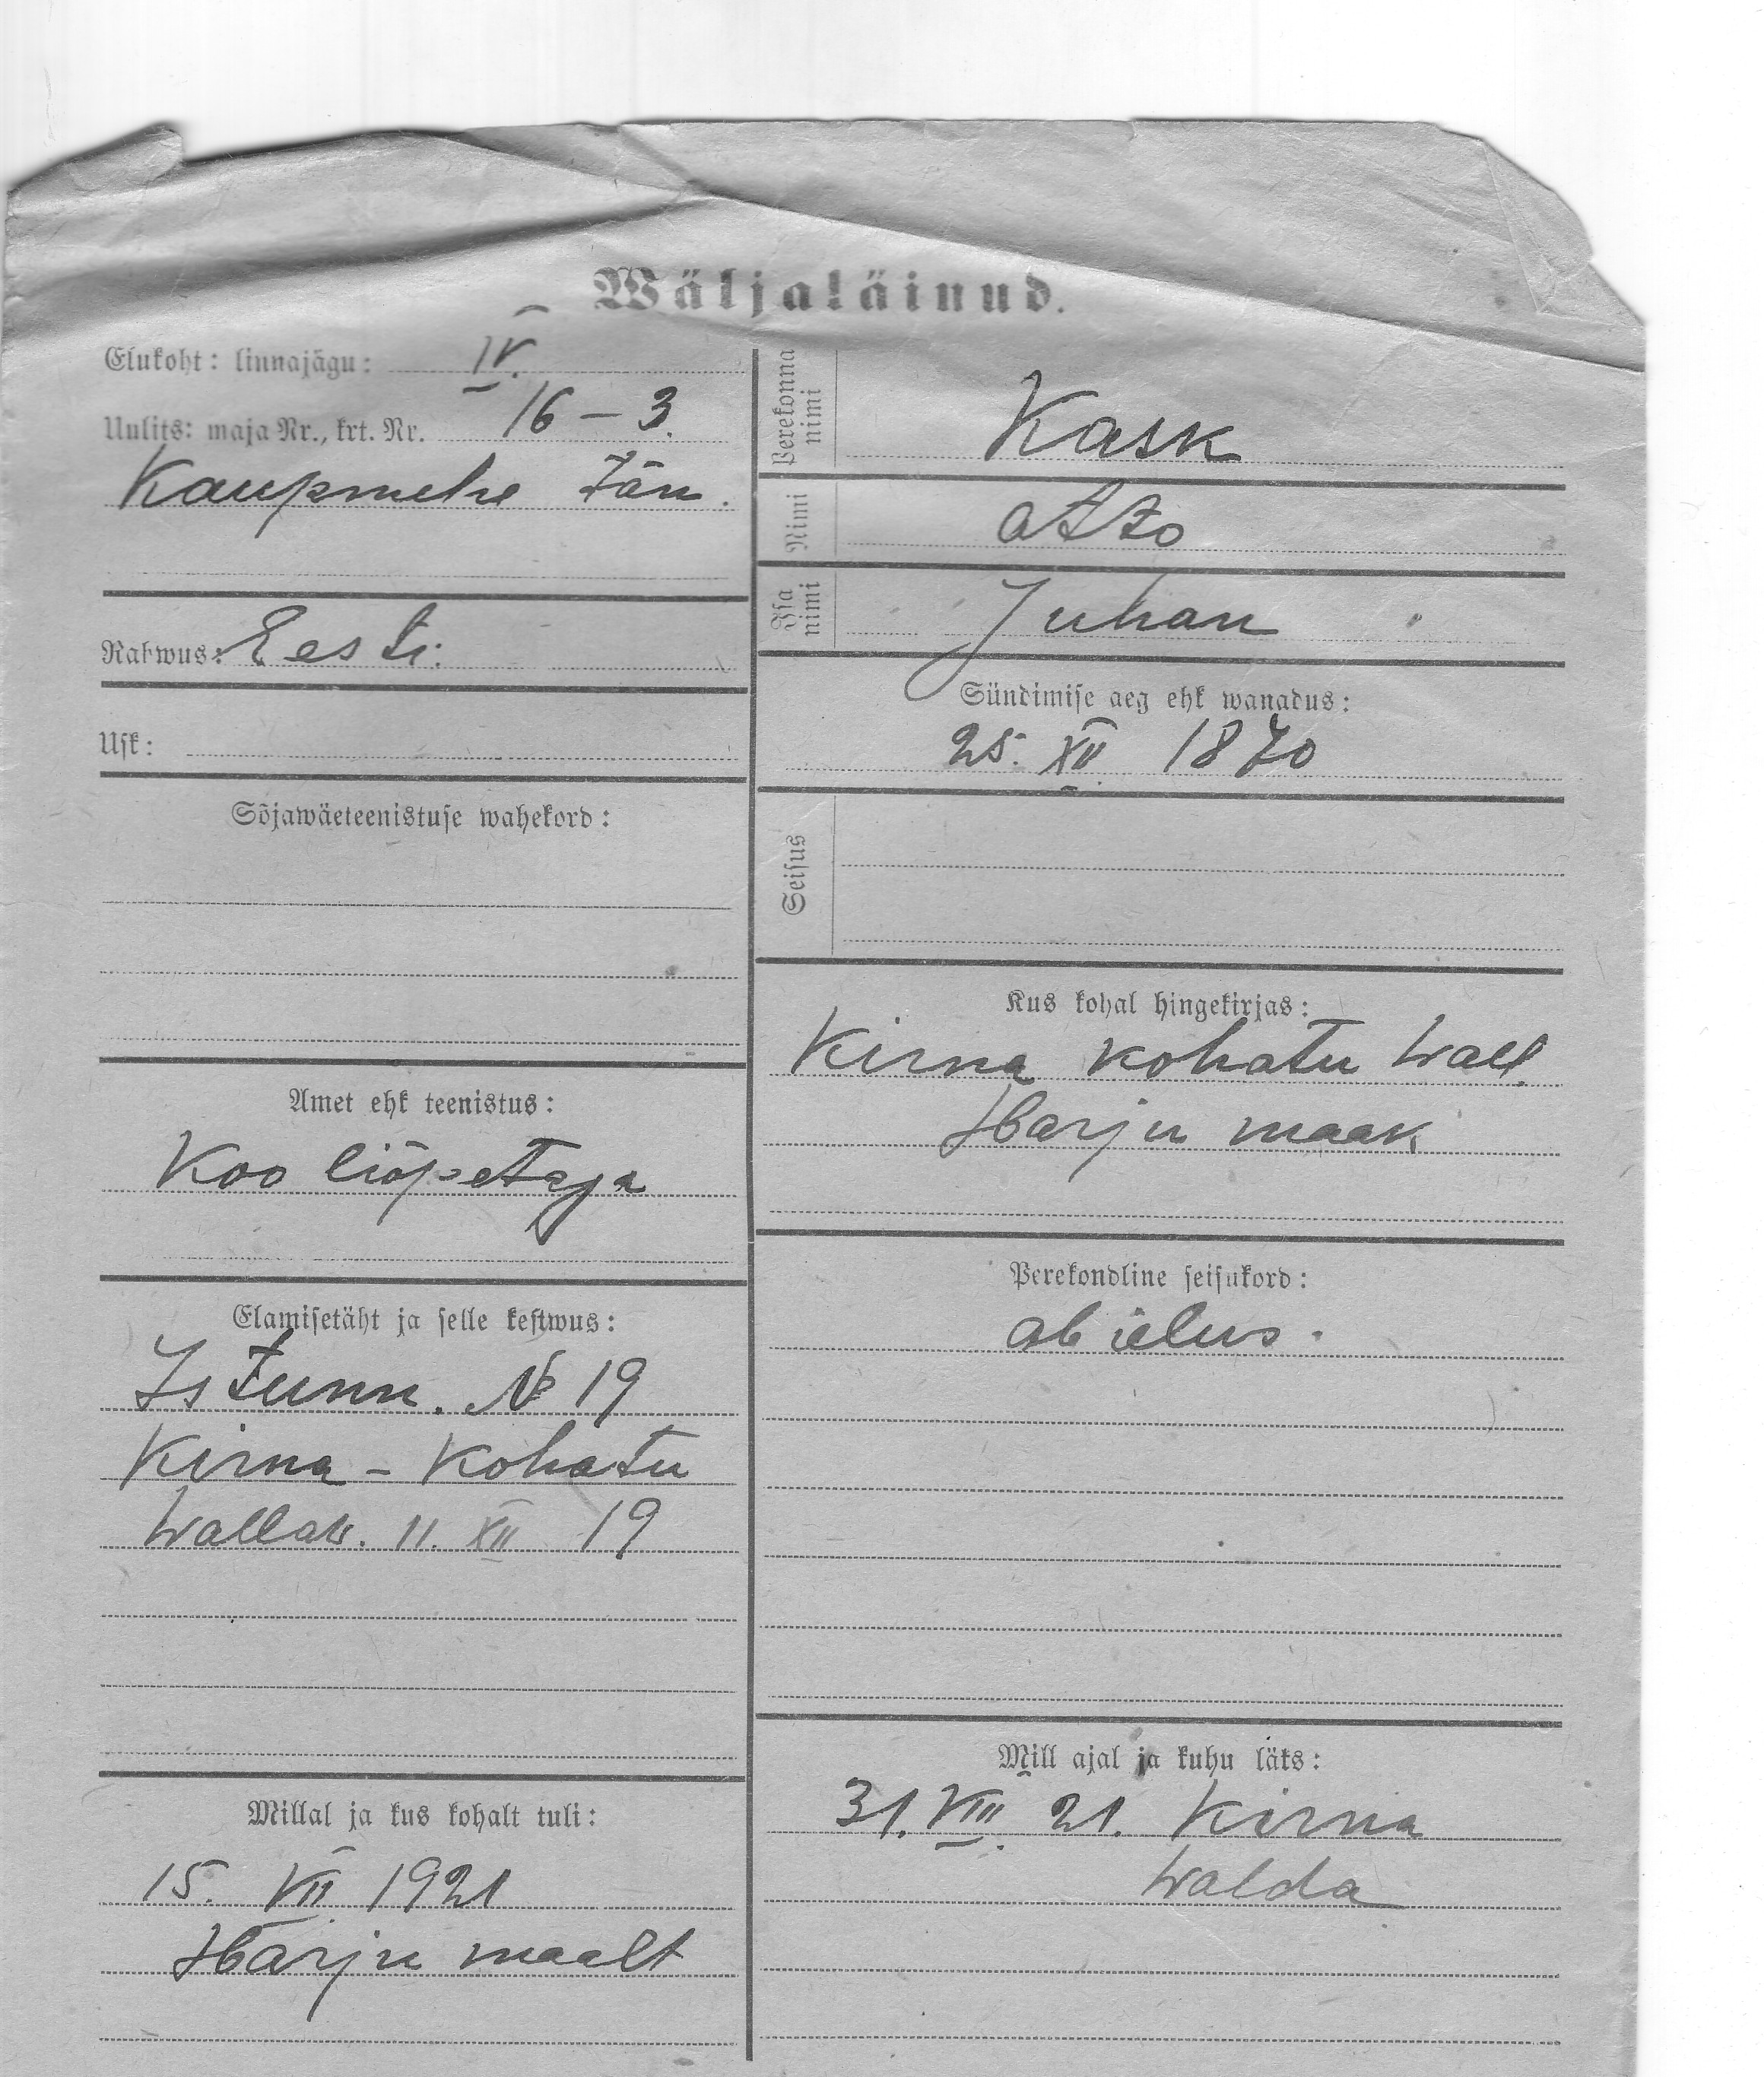 Wäljaläinud.
Elukoht: linnajägu: IV.
Uulits: maja Nr., krt. Nr. 16 – 3.
Kaupmehe tän.
Rahwus: Eesti.
Usk:
Sõjawäeteenistuse wahekord:
Amet ehk teenistus:
Kooliõpetaja
Elamisetäht ja selle kestwus:
Istunn. № 19
Kirna – Kohatu
Wallaw. 11. XII 19
Millal ja kus kohalt tuli:
15. VII 1921
Harju maalt
Perekonna
nimi
Kask
Nimi
Otto
Isa
nimi
Juhan
Sündimise aeg ehk wanadus:
25. XII 1870
Seisus
Kus kohal hingekirjas:
Kirna Kohatu Wall.
Harju maak
Perekondline seisukord:
abielus.
Mill ajal ja kuhu läks:
31. VIII 21. Kirna
Walda